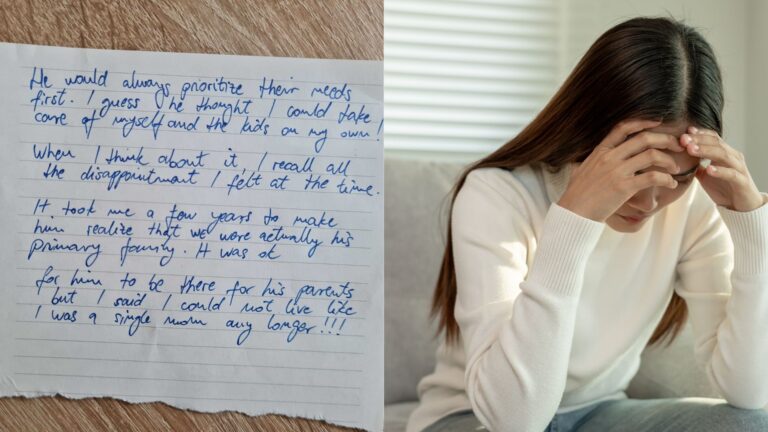 He would always prioritize their needs
first. I guess he thought I could take
care of myself and the kids on my own!
When I think about it, I recall all
the disappointment I felt at the time.
It took me a few years to make
him realize that we were actually his
primary family. It was ok
for him to be there for his parents
but I said I could not live like
I was a single mom any longer!!!